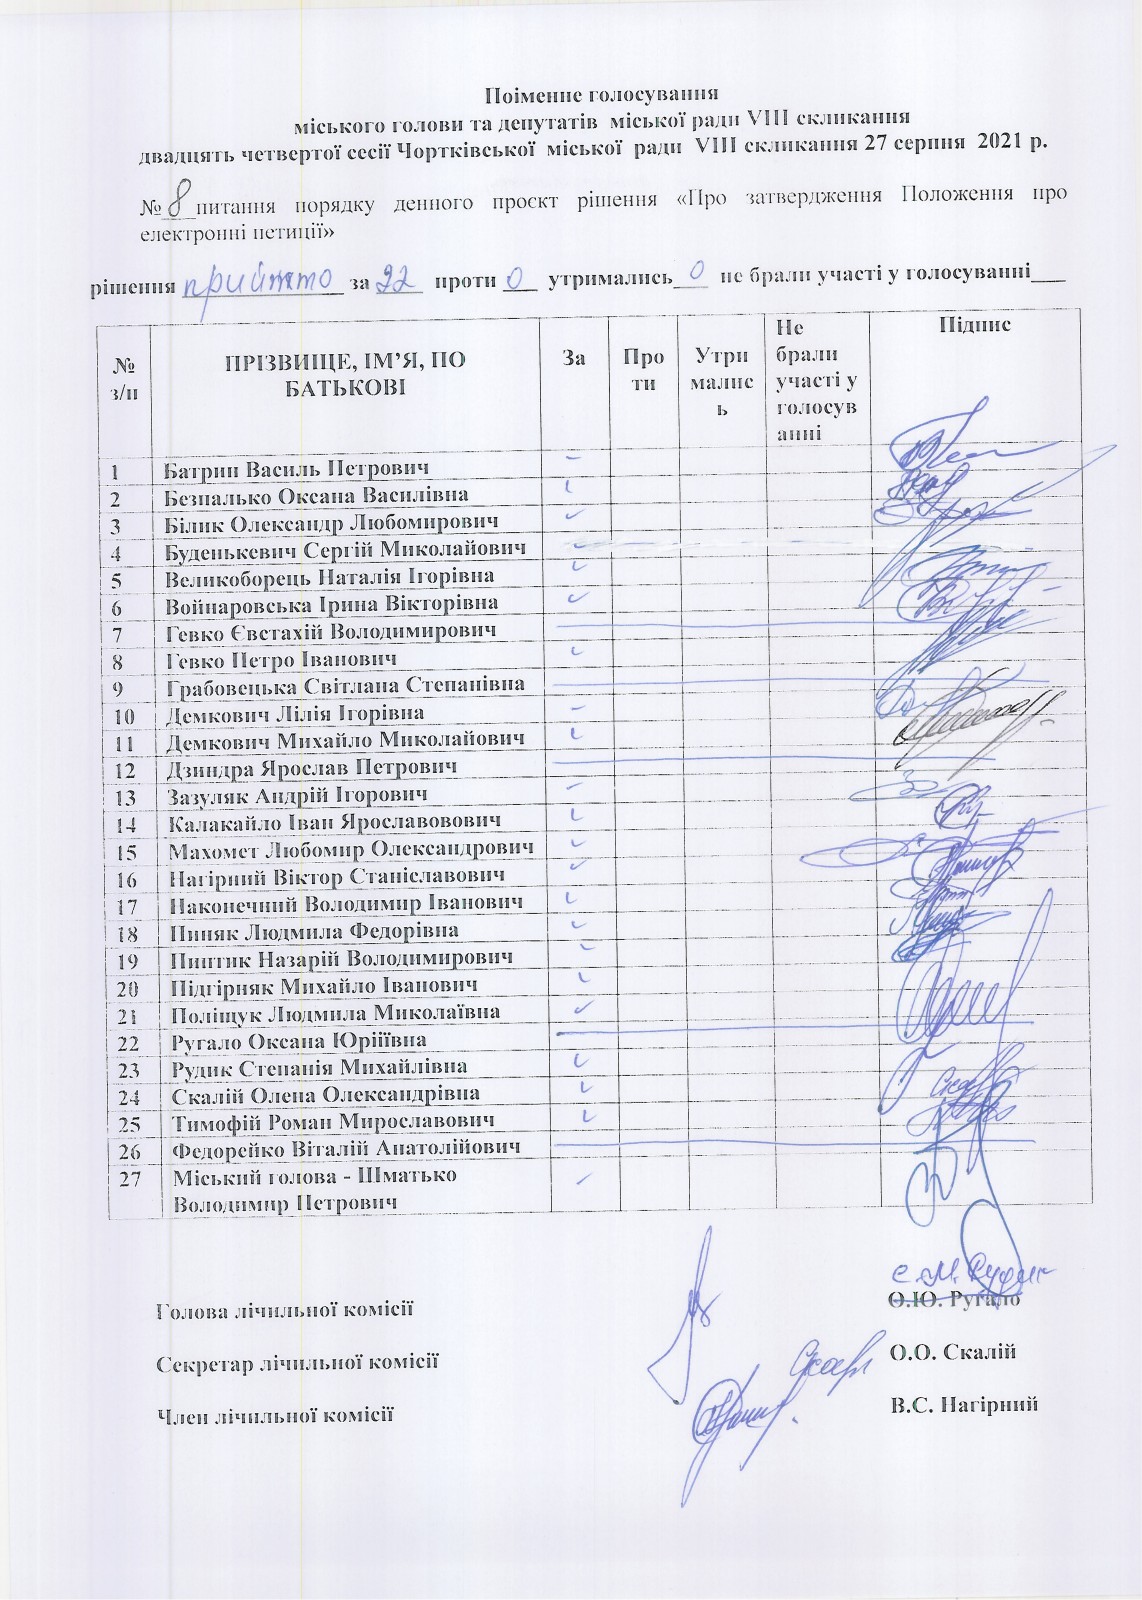 Поіменне голосування
міського голови та депутатів міської ради VIII скликання
двадцять четвертої сесії Чортківської міської ради VIII скликання 27 серпня 2021 р.
№ 8 питання порядку денного проєкт рішення «Про затвердження Положення про
електронні петиції»
рішення прийнято за 22 проти 0 утримались 0 не брали участі у голосуванні___
№ з/п ПРІЗВИЩЕ, ІМ’Я, ПО БАТЬКОВІ За Про ти Утри малис ь Не брали участі у голосув анні Підпис
1 Батрин Василь Петрович
2 Безпалько Оксана Василівна
3 Білик Олександр Любомирович
4 Буденькевич Сергій Миколайович
5 Великоборець Наталія Ігорівна
6 Войнаровська Ірина Вікторівна
7 Гевко Євстахій Володимирович
8 Гевко Петро Іванович
9 Грабовецька Світлана Степанівна
10 Демкович Лілія Ігорівна
11 Демкович Михайло Миколайович
12 Дзиндра Ярослав Петрович
13 Зазуляк Андрій Ігорович
14 Калакайло Іван Ярославовович
15 Махомет Любомир Олександрович
16 Нагірний Віктор Станіславович
17 Наконечний Володимир Іванович
18 Пиняк Людмила Федорівна
19 Пиптик Назарій Володимирович
20 Підгірняк Михайло Іванович
21 Поліщук Людмила Миколаївна
22 Ругало Оксана Юріїївна
23 Рудик Степанія Михайлівна
24 Скалій Олена Олександрівна
25 Тимофій Роман Мирославович
26 Федорейко Віталій Анатолійович
27 Міський голова - Шматько
Володимир Петрович
С.М. Рудик
Голова лічильної комісії О.Ю. Ругало
Секретар лічильної комісії О.О. Скалій
Член лічильної комісії В.С. Нагірний